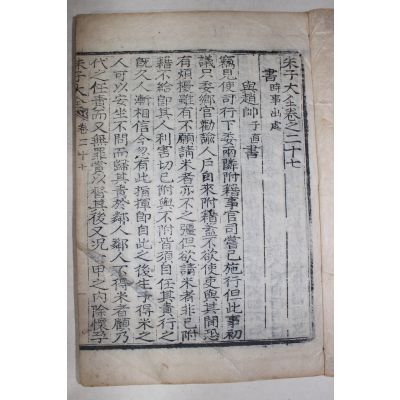 朱子大全卷之二十七
書 時事出處
與趙帥 子直 書
竊見使司行下委兩隣附籍事官司當已施行但此事初
議只委鄉官勸諭人戶自來附籍蓋不欲使吏與其間恐
有煩擾雖有不願請米者亦不之彊但欲請米者非已附
籍不給即其人利害切己附與不附皆須自任其責行之
既久人漸相信今忽有此指揮即自此之後生子得米之
人可以安坐不問而歸其責於鄰人鄰人不得米者顧乃
代之任責而又無罪賞以督其後又況一甲之內除懷孕
朱子大全 卷二十七